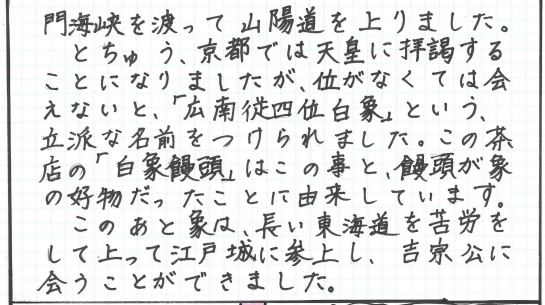 門海峡を渡って山陽道を上りました。
とちゅう、京都では天皇に拝謁する
ことになりましたが、位がなくては会
えないと、「広南従四位白象」という、
立派な名前をつけられました。この茶
店の「白象饅頭」はこの事と、饅頭が象
の好物だったことに由来しています。
このあと象は、長い東海道を苦労を
して上って江戸城に参上し、吉宗公に
会うことができました。